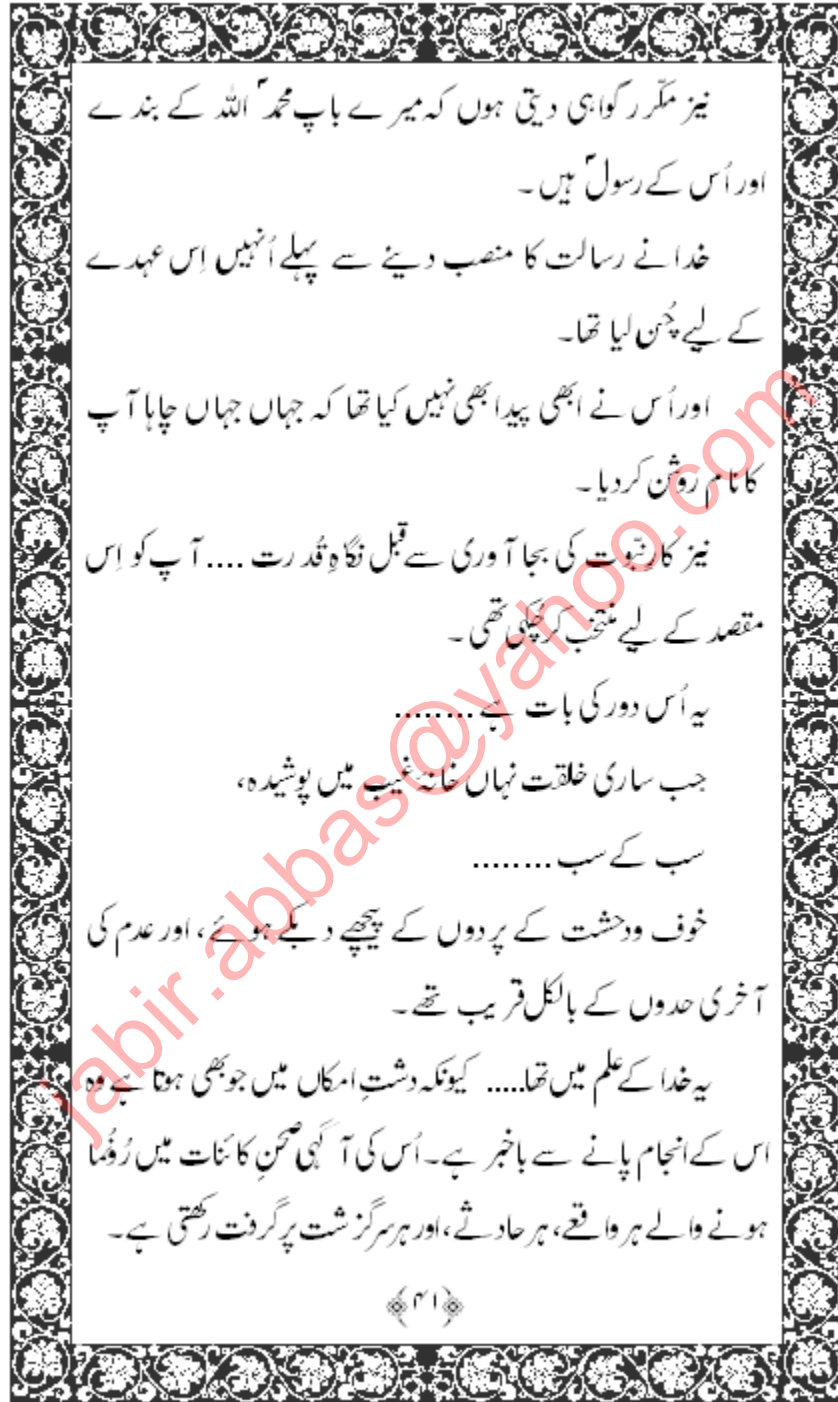 نیز مکّرر گواہی دیتی ہوں کہ میرے باپ محمدؐ اللہ کے بندے
اور اُس کے رسولؐ ہیں۔
خدا نے رسالت کا منصب دینے سے پہلے اُنہیں اِس عہدے
کے لیے چُن لیا تھا۔
اور اُس نے ابھی پیدا بھی نہیں کیا تھا کہ جہاں جہاں چاہا آپ
کا نام روشن کردیا۔
نیز کارِ نبّوت کی بجا آوری سے قبل نگاہِ قُدرت .... آپ کو اِس
مقصد کے لیے منتخب کرچُکی تھی۔
یہ اُس دور کی بات ہے ........
جب ساری خلقت نہاں خانۂ غیب میں پوشیدہ،
سب کے سب ........
خوف ودہشت کے پردوں کے پیچھے دبکے ہوئے، اور عدم کی
آخری حدوں کے بالکل قریب تھے۔
یہ خدا کے علم میں تھا..... کیونکہ دشتِ امکاں میں جو بھی ہوتا ہے وہ
اس کے انجام پانے سے باخبر ہے۔ اُس کی آگہی صحنِ کائنات میں رُونُما
ہونے والے ہر واقعے، ہر حادثے، اور ہر سرگزشت پر گرفت رکھتی ہے۔
﴿۴۱﴾
jabir.abbas@yahoo.com